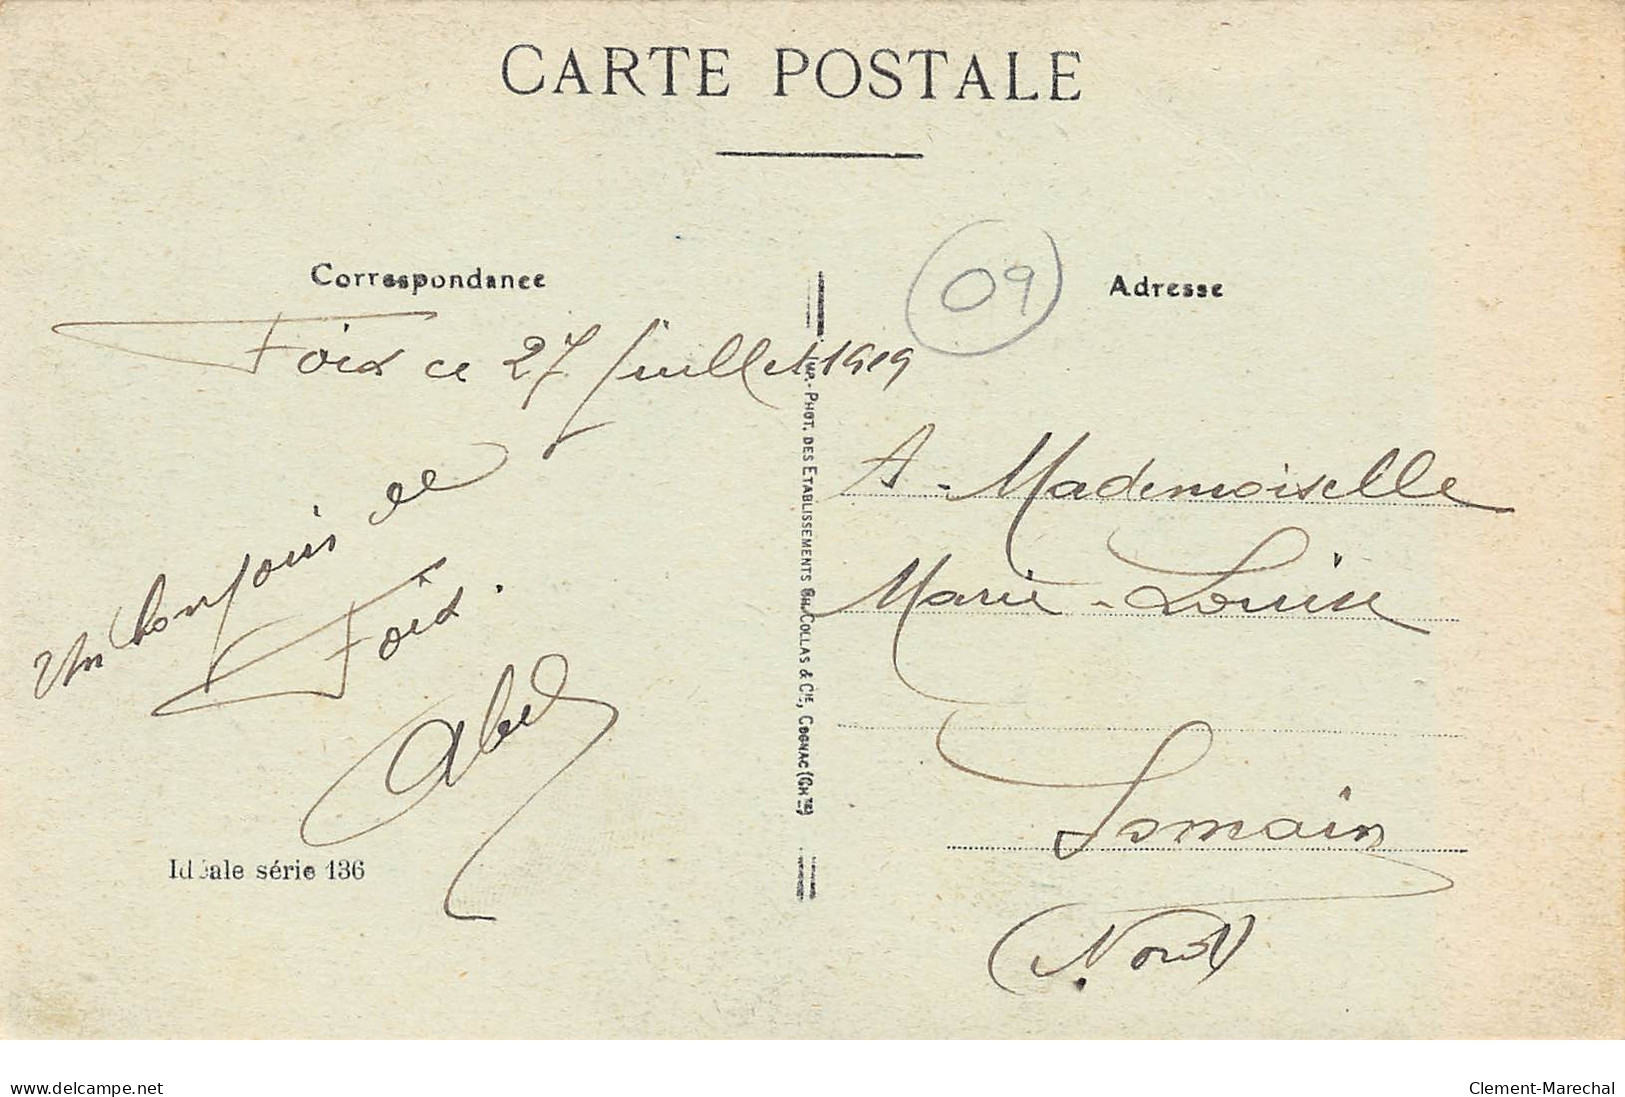 CARTE POSTALE
Correspondance
Foix ce 27 Juillet 1919
Un bonjour de
Foix.
Abel
Idéale série 136
IMP.-PHOT. DES ETABLISSEMENTS CH. COLLAS & CIE, COGNAC (CHTE)
09
Adresse
A Mademoiselle
Marie-Louise
Somain
(Nord)
www.delcampe.net
Clement-Marechal